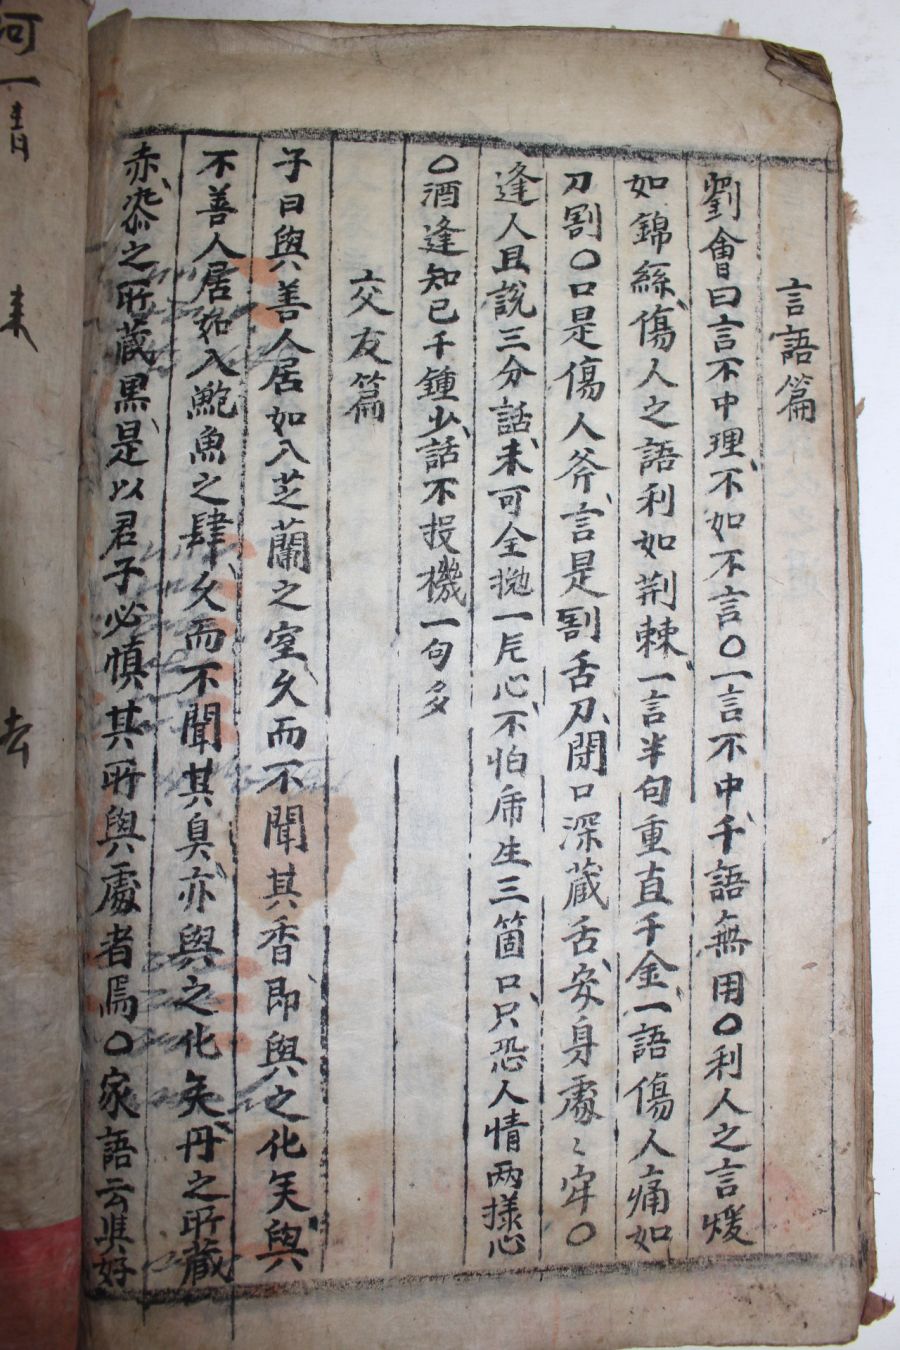 言語篇
劉會曰言不中理不如不言〇一言不中千語無用〇利人之言煖
如錦絲傷人之語利如荆棘一言半句重直千金一語傷人痛如
刀割〇口是傷人斧言是割舌刀閉口深藏舌安身處〻牢〇
逢人且說三分話未可全抛一片心不怕乕生三箇口只恐人情两㨾心
〇酒逢知已千鍾少話不投機一句多
交友篇
子曰與善人居如入芝蘭之室久而不聞其香即與之化矣與
不善人居如入鮑魚之肆久而不聞其臭亦與之化矣丹之所藏
赤漆之所藏黑是以君子必慎其所與處者焉〇家語云與好
河一清
来
去